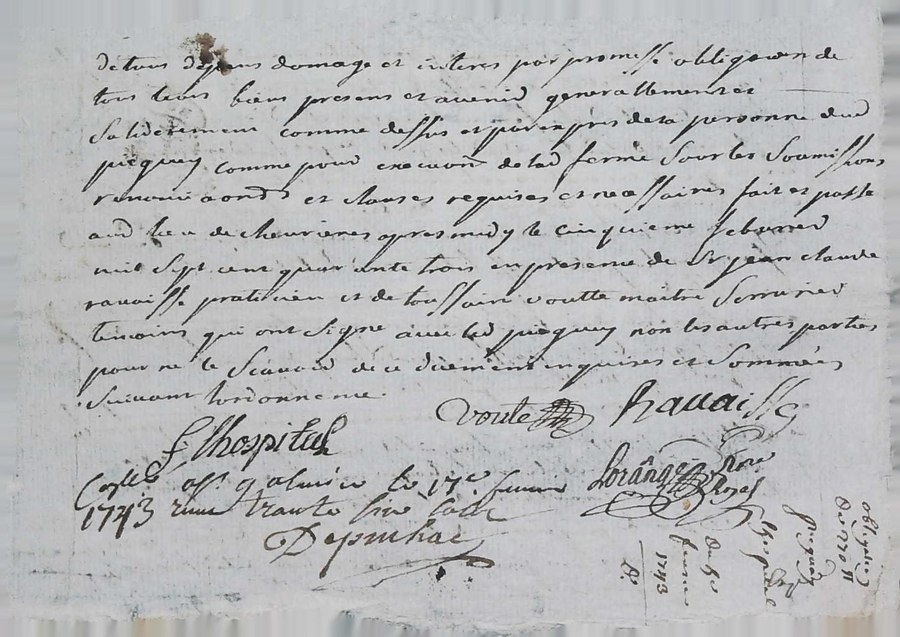 de tous depens domage et interes par promesse obligaoen de
tous leurs biens presens et avenir generallement et
solidairement comme dessus et par expres de la personne dud
picquey comme pour execuon de lad ferme sous les soumissions
renonciaons et clauses requises et necessaires fait et passé
aud lieu de chevrieres apres midy le cinquieme febvrier
mil sept cent quarante trois en presence de Sr jean claude
ravaisse praticien et de toussain voutte maitre serrurier
temoins qui ont signé avec led picquey non les autres parties
pour ne le scavoir de ce duement enquises et sommées
suivant lordonnence
voute Ravaisse
lhospital
Lorânge Nore Royal
Conlle a St galmier le 17e fevrier
1743 reçu trante six sols
Depuihac
obligation
de
picquey
lhospital
du 5e
fevrier
1743